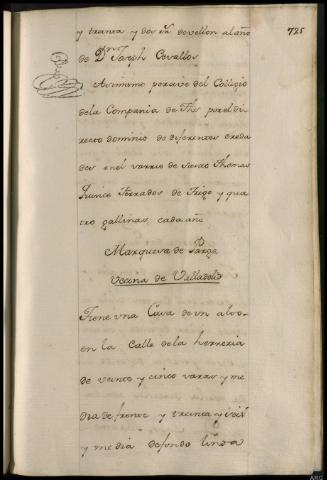 725
y treinta y dos rs. de vellon al año
de Dn. Joseph Cevallos
Asimismo percive del Collegio
de la Compania de Jhs por el di
recto dominio de diferentes ereda
des en el varrio de Santo Thomas
quince ferrados de trigo y qua
tro gallinas, cada año
Marquesa de Parga
Vecina de Vallado
Tiene una Casa de un alto
en la Calle de la herreria
de veinte y cinco varas y me
dia de frente y treinta y seis
y media de fondo linda